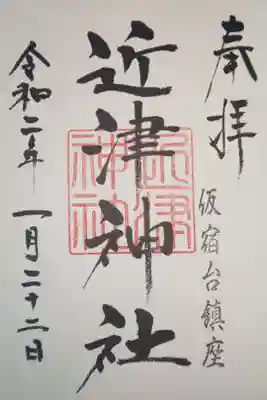 奉拝
仮宿台鎮座
近津神社
令和二年一月二十二日